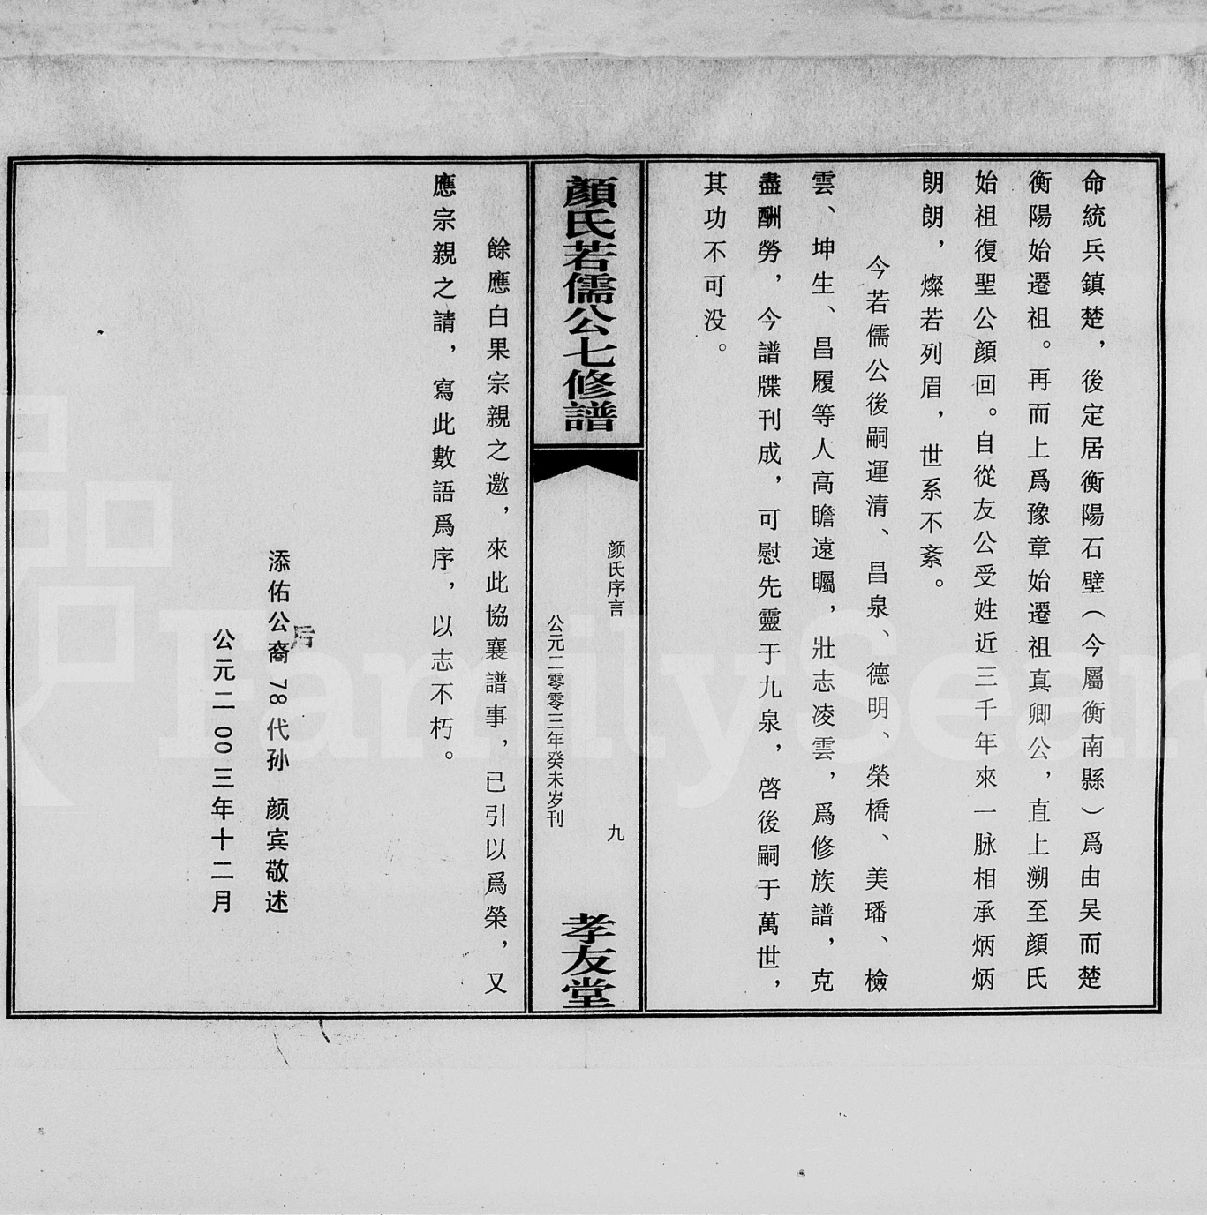 命統兵鎮楚，後定居衡陽石壁（今屬衡南縣）爲由吴而楚
衡陽始遷祖。再而上爲豫章始遷祖真卿公，直上溯至顔氏
始祖復聖公顔回。自從友公受姓近三千年來一脉相承炳炳
朗朗，燦若列眉，世系不紊。
今若儒公後嗣運清、昌泉、德明、榮橋、美璠、檢
雲、坤生、昌履等人高瞻遠矚，壯志凌雲，爲修族譜，克
盡酬勞，今譜牒刊成，可慰先靈于九泉，啓後嗣于萬世，
其功不可没。
顏氏若儒公七修譜
颜氏序言
九
公元二零零三年癸未岁刊
孝友堂
餘應白果宗親之邀，來此協襄譜事，已引以爲榮，又
應宗親之請，寫此數語爲序，以志不朽。
添佑公裔78代孙 颜宾敬述
后
公元二00三年十二月
FamilySear